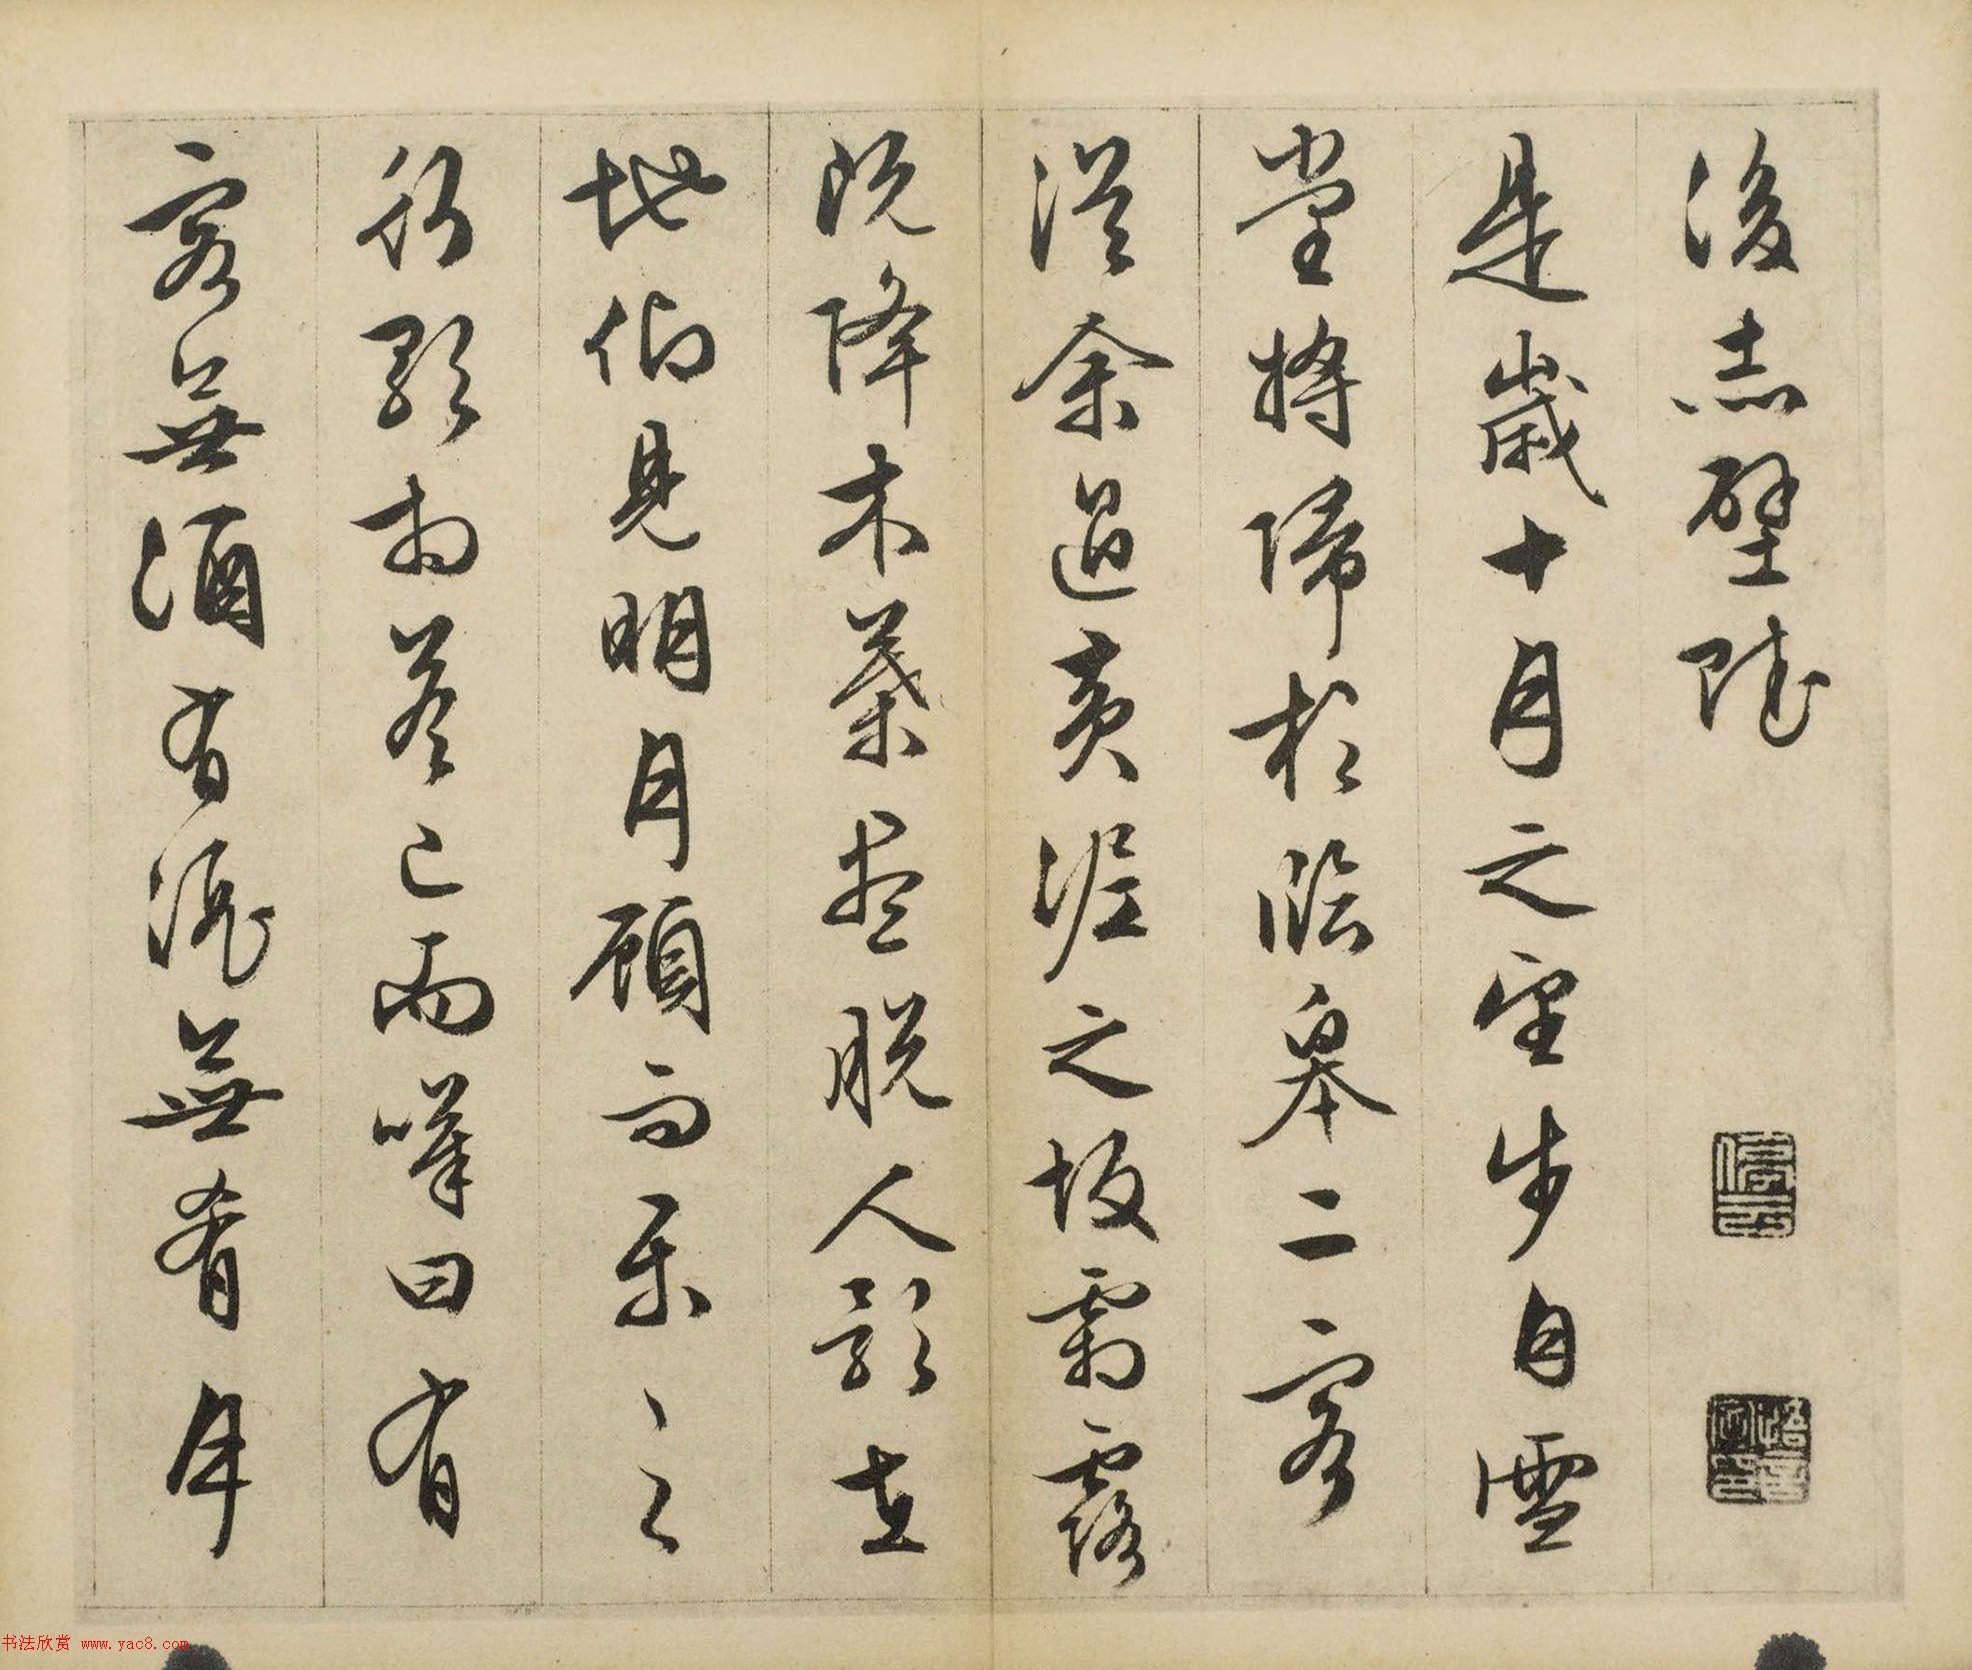 後赤壁賦
停雲
悟言室印
是歲十月之望步自雪
堂將歸於臨皋二客
從余過黃泥之坂霜露
既降木葉盡脫人影在
地仰見明月顧而樂之
行歌相答已而嘆曰有
客無酒有酒無肴月
书法欣赏 www.yac8.com